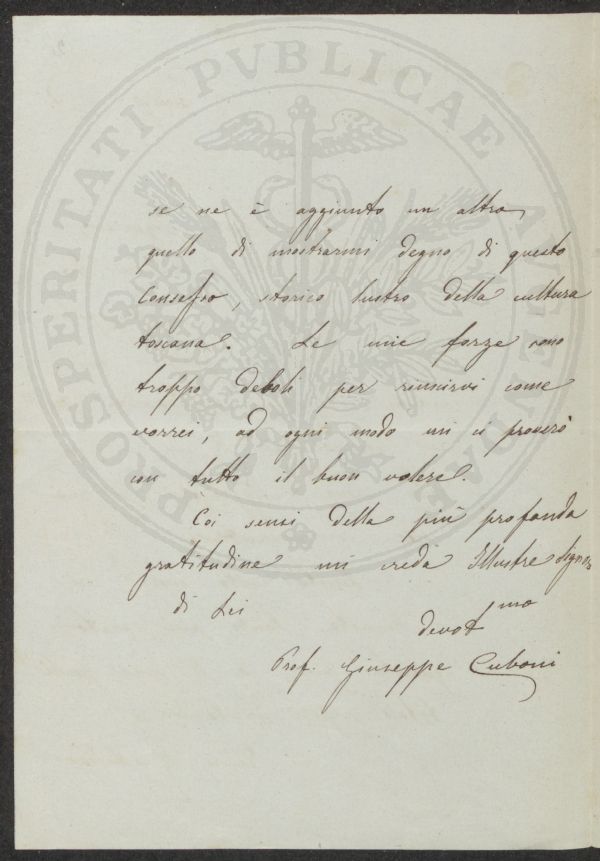 PROSPERITATI PVBLICAE AVGENDAE
se ne è aggiunto un altro,
quello di mostrarmi degno di questo
Consesso, storico lustro della cultura
toscana. Le mie forze sono
troppo deboli per riuscirvi come
vorrei, ad ogni modo mi ci proverò
con tutto il buon volere.
Coi sensi della più profonda
gratitudine mi creda Illustre Signore
di Lei
devot mo
Prof. Giuseppe Cuboni